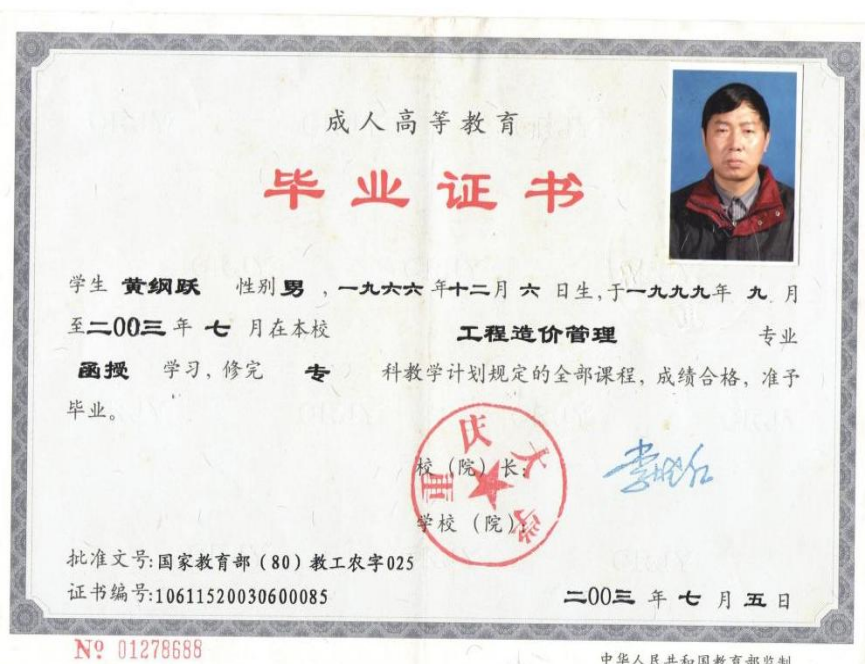 成人高等教育
毕业证书
学生 黄纲跃 性别 男 ，一九六六 年十二月 六 日生，于一九九九年 九 月
至二00三 年 七 月在本校 工程造价管理 专业
函授 学习，修完 专 科教学计划规定的全部课程，成绩合格，准予
毕业。
重庆大学
校（院）长：
学校（院）：
批准文号:国家教育部（80）教工农字025
证书编号:10611520030600085
二00三 年 七 月 五 日
№ 01278688
中华人民共和国教育部监制